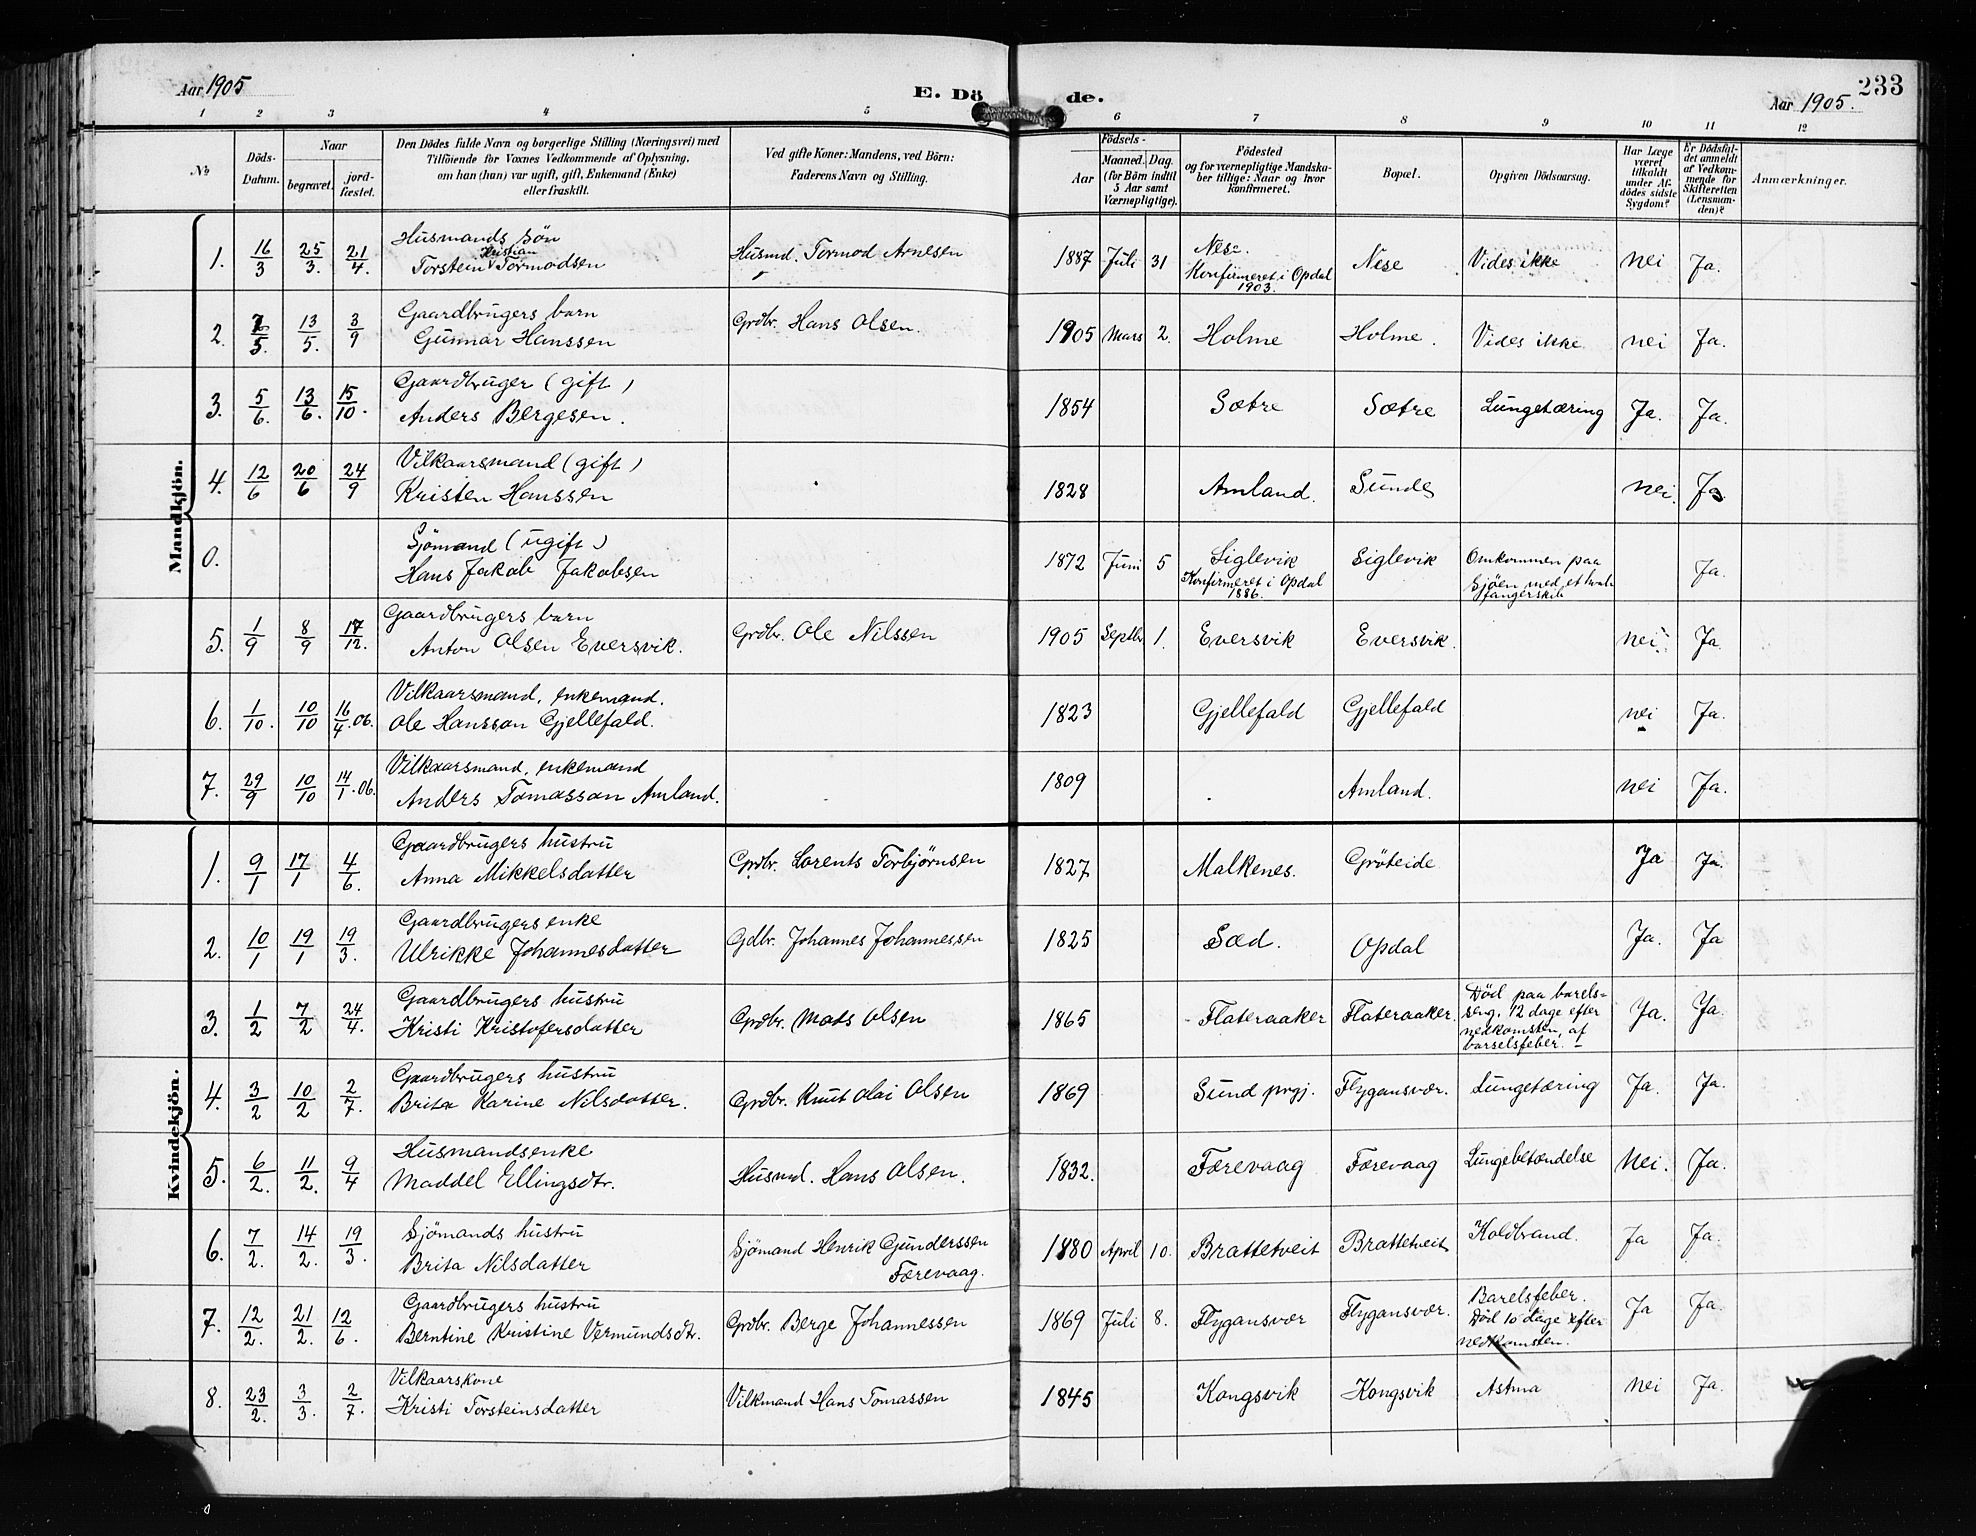 Aar 1905
E. Dö de.
233
Aar 1905.
1 2 3 4 5 6 7 8 9 10 11 12
No
Döds-Datum.
Naar
begravet.
jord-fæstet.
Den Dödes fulde Navn og borgerlige Stilling (Næringsvei) med
Tilföiende for Voxnes Vedkommende af Oplysning,
om han (hun) var ugift, gift, Enkemand (Enke)
eller fraskilt.
Ved gifte Koner: Mandens, ved Börn:
Faderens Navn og Stilling.
Födsels-
Aar
Maaned. Dag.
(for Börn indtil
5 Aar samt
Værnepligtige).
Födested
og for værnepligtige Mandska-
ber tillige: Naar og hvor
konfirmeret.
Bopæl.
Opgiven Dödsaarsag.
Har Læge
været
tilkaldt
under Af-
dödes sidste
Sygdom?
Er Dödsfal-
det anmeldt
af Vedkom-
mende for
Skifteretten
(Lensman-
den)?
Anmærkninger.
Mandkjön.
1. 16/3 25/3. 21/4. Husmands sön
Kristian
Torstein Tormodsen Husmd. Tormod Arnesen 1887 Juli 31 Nese
Konfirmeret i Opdal
1903. Nese Vides ikke nei Ja.
2. 7/5. 13/5. 3/9 Gaardbrugers barn
Gunnar Hanssen Grdbr. Hans Olsen. 1905 Mars 2. Holme Holme. Vides ikke nei Ja.
3. 5/6. 13/6. 15/10. Gaardbruger (gift)
Anders Bergesen. 1854 Sætre Sætre Lungetæring Ja. Ja.
4. 12/6 20/6 24/9 Vilkaarsmand (gift)
Kristen Hanssen 1828 Amland. Sunde nei. Ja
0. Sjömand (ugift)
Hans Jakob Jakobsen 1872 Juni 5 Siglevik
Konfirmeret i Opdal
1886. Siglevik Omkommen paa
Sjöen med et hval-
fangerskib Ja.
5. 1/9 8/9 17/12. Gaardbrugers barn
Anton Olsen Eversvik. Grdbr. Ole Nilssen 1905 Septbr 1. Eversvik Eversvik. nei. Ja
6. 1/10. 10/10 16/4.06. Vilkaarsmand, enkemand.
Ole Hansson Gjellefald. 1823 Gjellefald Gjellefald nei Ja.
7. 29/9 10/10 14/1.06. Vilkaarsmand, enkemand
Anders Tomasson Amland. 1809 Amland. nei Ja.
Kvindekjön.
1. 9/1 17/1 4/6. Gaardbrugers hustru
Anna Mikkelsdatter Grdbr. Lorents Torbjørnsen 1827 Malkenes. Gröteide Ja Ja.
2. 10/1 19/1 19/3. Gaardbrugers enke
Ulrikke Johannesdatter Gdbr. Johannes Johannessen 1825 Sæd. Opdal Ja. Ja
3. 1/2 7/2 24/4. Gaardbrugers hustru
Kristi Kristofersdatter Grdbr. Mads Olsen 1865 Flateraaker Flateraaker. Död paa barels=
seng, 12 dage efter
nedkomsten, af
barselsfeber. Ja. Ja.
4. 3/2 10/2 2/7. Gaardbrugers hustru
Brita Karine Nilsdatter. Grdbr. Knut Olai Olsen 1869 Sund prgj. Flygansvær. Lungetæring Ja. Ja.
5. 6/2. 11/2. 9/4 Husmandsenke
Maddel Ellingsdtr. Husmd. Hans Olsen. 1832. Færevaag Færevaag Lungebetændelse Nei. Ja.
6. 7/2. 14/2. 19/3. Sjömands hustru
Brita Nilsdatter Sjömand Henrik Gunderssen
Færevaag. 1880 April 10. Brattetveit Brattetveit Koldbrand. Ja Ja.
7. 12/2. 21/2. 12/6. Gaardbrugers hustru
Berntine Kristine Vermundsdtr. Grdbr. Berge Johannessen 1869 Juli 8. Flygansvær Flygansvær. Barelsfeber.
Död 10 dage efter
nedkomsten. Ja Ja.
8. 23/2. 3/3. 2/7. Vilkaarskone
Kristi Torsteinsdatter Vilkmand Hans Tomassen 1845 Kongsvik Kongsvik Astma nei Ja.